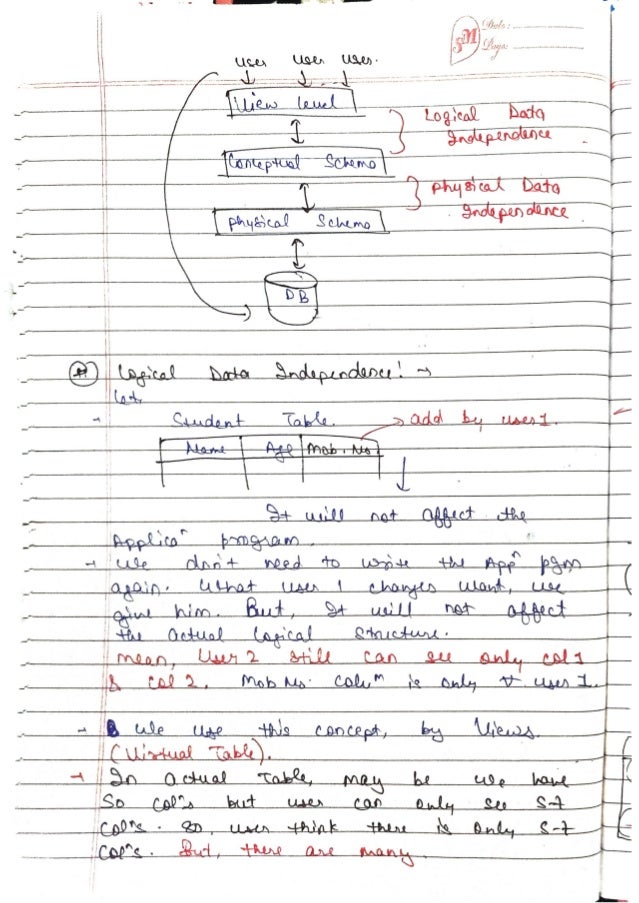 Date:
Page:
SM
user user user.
View Level
Logical Data
Independence
Conceptual Schema
Physical Data
Independence
Physical Schema
DB
Logical Data Independence! →
Let,
Student Table. → add by user 1.
Name Age Mob. No.
It will not affect the
Applicaⁿ program.
→ We don't need to write the Appⁿ pgm
again. What user 1 changes want, we
give him. But, It will not affect
the actual Logical Structure.
mean, User 2 still can see only col 1
& col 2. Mob No. Coluᵐ is only ∀ user 1.
→ We use this concept, by Views.
(Virtual Table).
→ In actual Table, may be we have
50 colⁿs but user can only see 5-7
colⁿs. So, user think there is only 5-7
colⁿs. But, there are many.